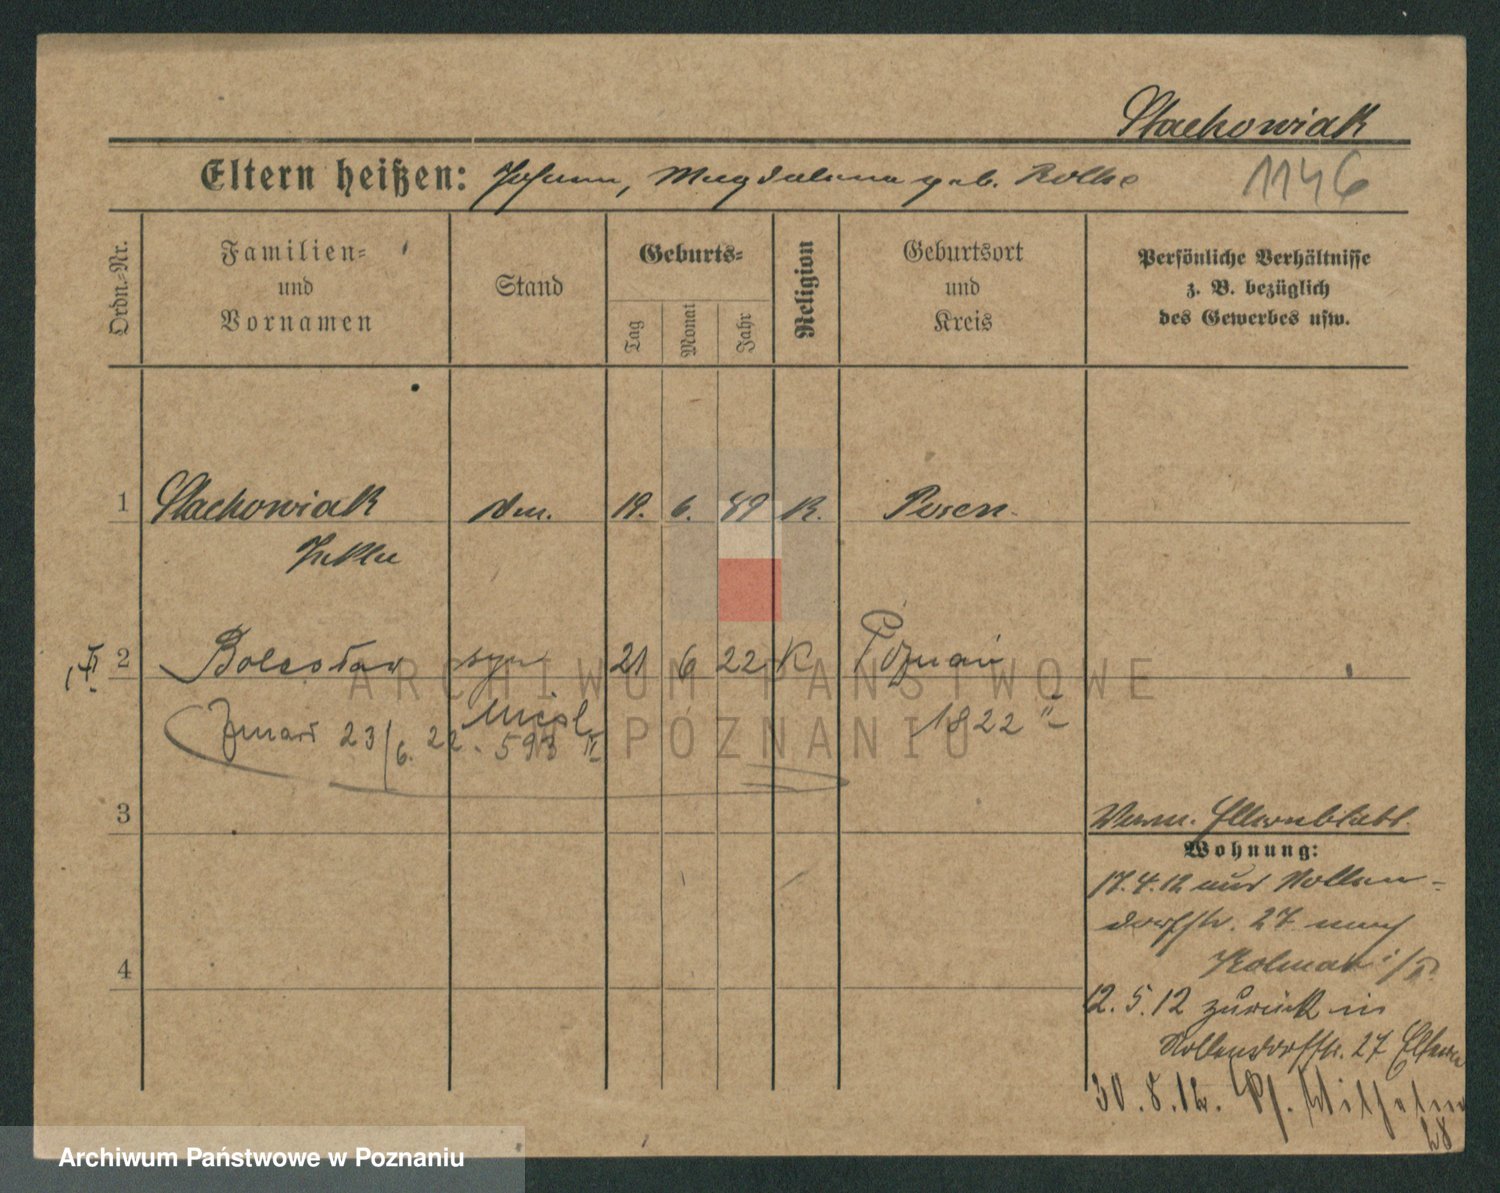 Stachowiak
Eltern heißen: Johann, Magdalena geb. Nolke
1146
Ordn.-Nr.
Familien-
und
Vornamen
Stand
Geburts-
Tag
Monat
Jahr
Religion
Geburtsort
und
Kreis
Persönliche Verhältnisse
z. B. bezüglich
des Gewerbes usw.
1 Stachowiak 19. 6. 89 K. Posen.
2 Bolesław syn 21 6 22 K Poznań
23/6. 22. 593 II 1822 II
3
Elternblatt
Wohnung:
17.4.12 aus Nollen-
dorfstr. 27 nach
Kolmar i/P.
4
12.5.12 zurück in
Nollendorfstr. 27 Eltern
30.8.12. Wilhelm
28
ARCHIWUM PAŃSTWOWE
POZNANIU
Archiwum Państwowe w Poznaniu